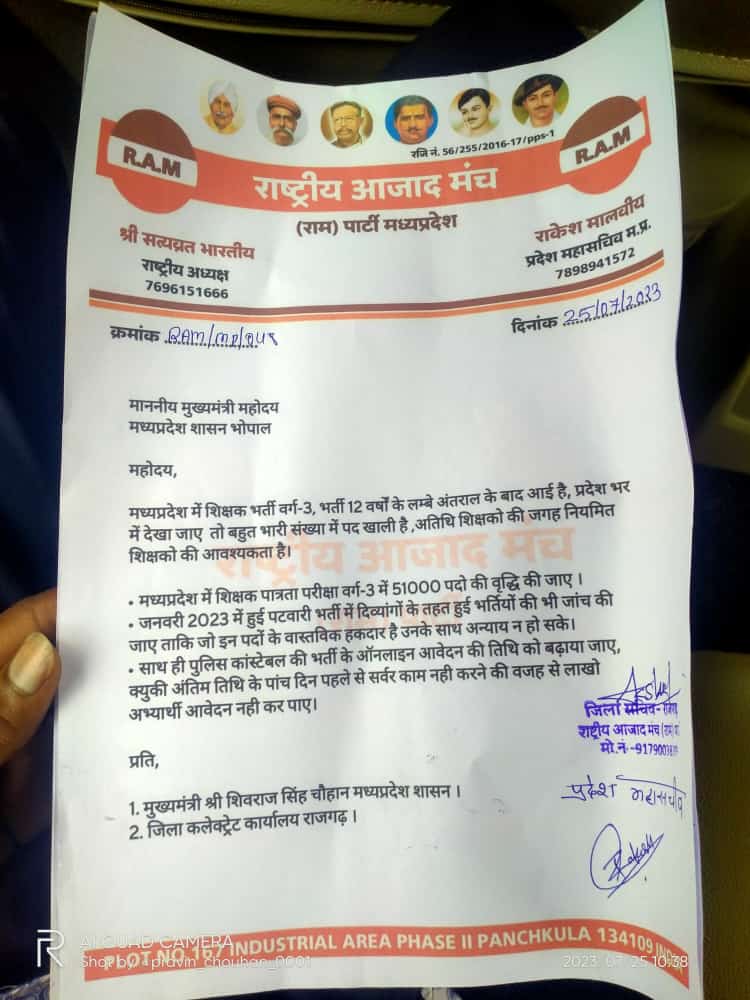 रजि नं. 56/255/2016-17/pps-1
R.A.M
R.A.M
राष्ट्रीय आजाद मंच
(राम) पार्टी मध्यप्रदेश
श्री सत्यव्रत भारतीय
राष्ट्रीय अध्यक्ष
7696151666
राकेश मालवीय
प्रदेश महासचिव म.प्र.
7898941572
क्रमांक RAM/MP/
दिनांक 25/07/2023
माननीय मुख्यमंत्री महोदय
मध्यप्रदेश शासन भोपाल
महोदय,
मध्यप्रदेश में शिक्षक भर्ती वर्ग-3, भर्ती 12 वर्षों के लम्बे अंतराल के बाद आई है, प्रदेश भर
में देखा जाए तो बहुत भारी संख्या में पद खाली है ,अतिथि शिक्षको की जगह नियमित
शिक्षको की आवश्यकता है।
राष्ट्रीय आजाद मंच
• मध्यप्रदेश में शिक्षक पात्रता परीक्षा वर्ग-3 में 51000 पदो की वृद्धि की जाए ।
• जनवरी 2023 में हुई पटवारी भर्ती में दिव्यांगों के तहत हुई भर्तियों की भी जांच की
जाए ताकि जो इन पदों के वास्तविक हकदार है उनके साथ अन्याय न हो सके।
• साथ ही पुलिस कांस्टेबल की भर्ती के ऑनलाइन आवेदन की तिथि को बढ़ाया जाए,
क्युकी अंतिम तिथि के पांच दिन पहले से सर्वर काम नही करने की वजह से लाखो
अभ्यार्थी आवेदन नही कर पाए।
जिला सचिव-
राष्ट्रीय आजाद मंच (राम)
मो.नं.-
प्रति,
प्रदेश महासचीव
1. मुख्यमंत्री श्री शिवराज सिंह चौहान मध्यप्रदेश शासन ।
2. जिला कलेक्ट्रेट कार्यालय राजगढ़ ।
PLOT NO. 167 INDUSTRIAL AREA PHASE II PANCHKULA 134109 INDIA
AI QUAD CAMERA
Shot by : pravin_chouhan_0001
2023.07.25 10:38